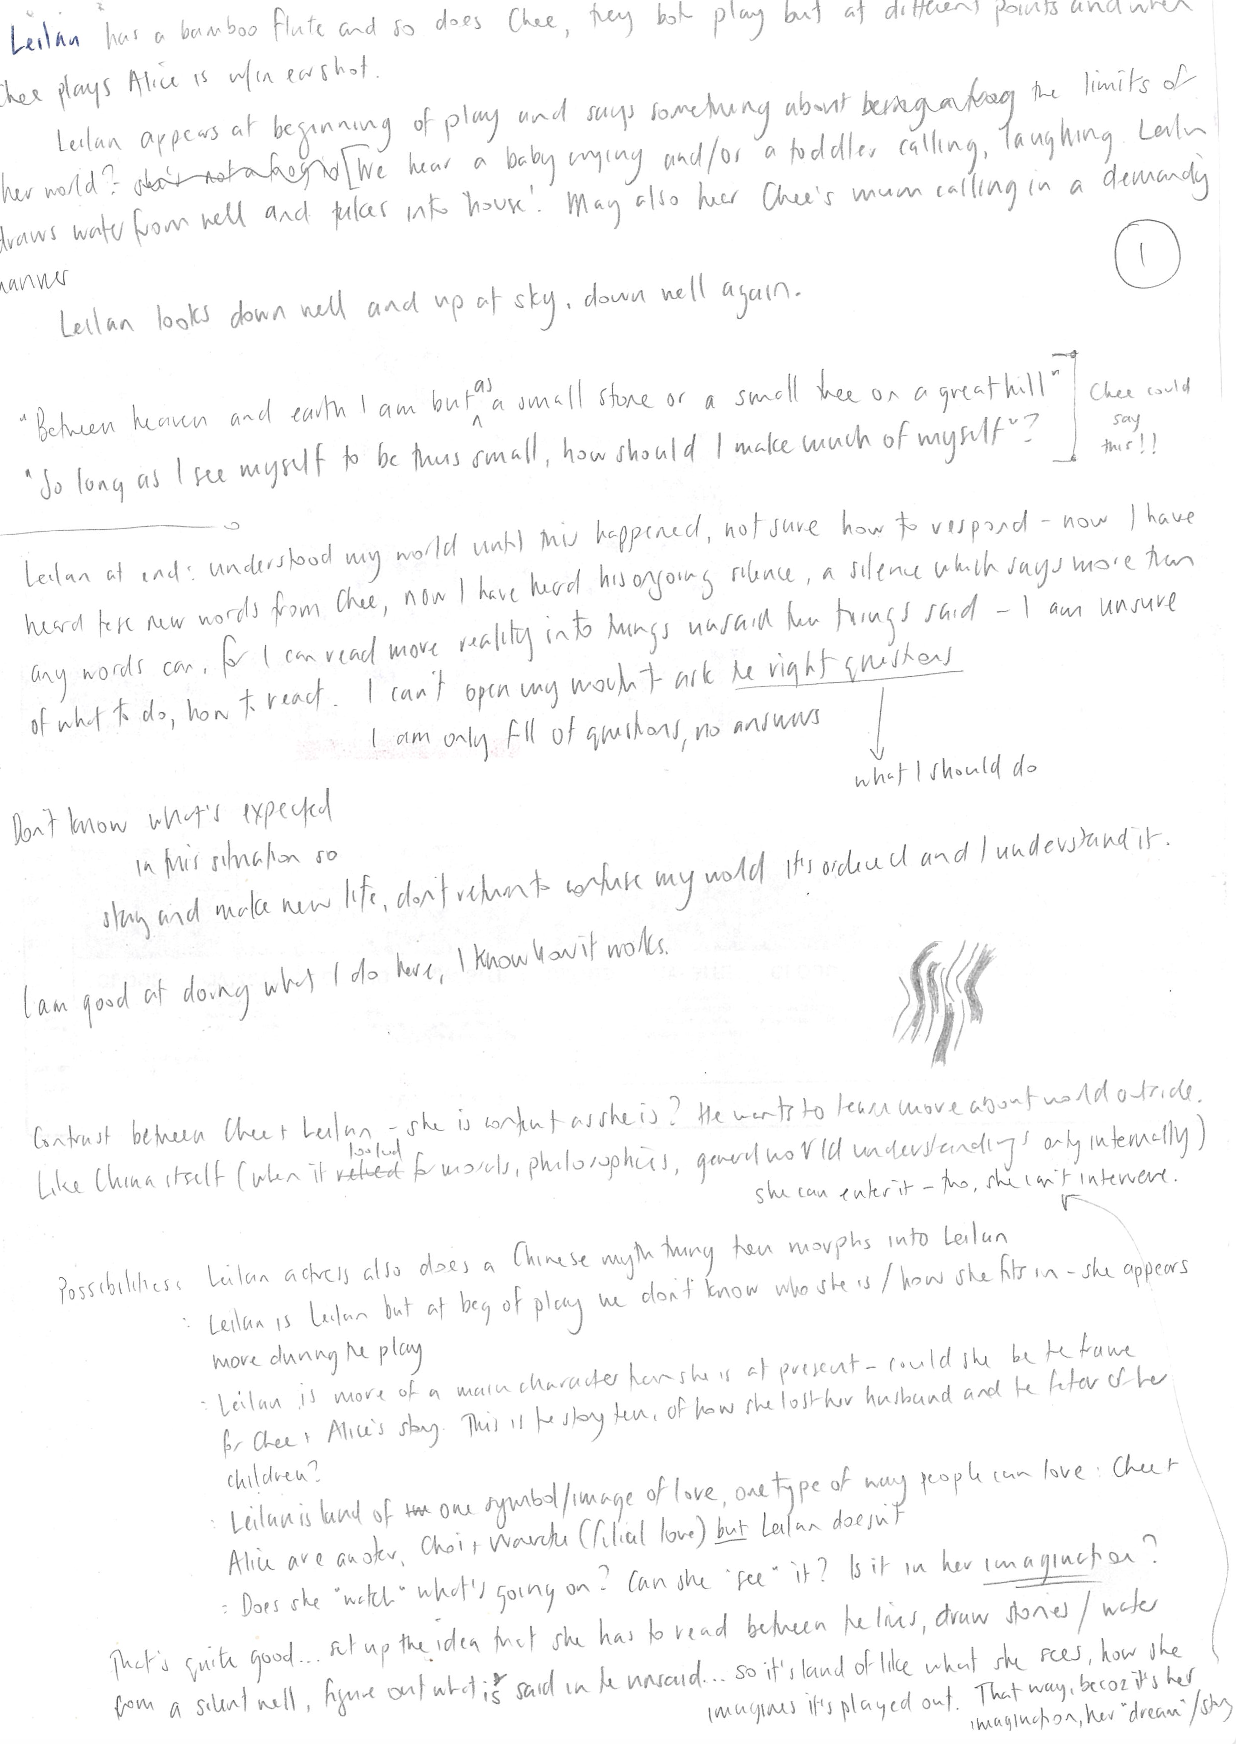 Leilan has a bamboo flute and so does Chee, they both play but at different points and when
Chee plays Alice is w/in earshot.
Leilan appears at beginning of play and says something about being a frog the limits of
her world? - she's not a frog [We hear a baby crying and/or a toddler calling, laughing. Leilan
draws water from well and takes into 'house'. May also hear Chee's mum calling in a demandy
manner
1
Leilan looks down well and up at sky, down well again.
"Between heaven and earth I am but as a small stone or a small tree on a great hill"
"So long as I see myself to be thus small, how should I make much of myself"?
Chee could
say
this!!
Leilan at end: understood my world until this happened, not sure how to respond - now I have
heard these new words from Chee, now I have heard his ongoing silence, a silence which says more than
any words can, for I can read more reality into things unsaid than things said - I am unsure
of what to do, how to react. I can't open my mouth + ask the right questions
I am only full of questions, no answers
what I should do
Don't know what's expected
in this situation so
stay and make new life, don't return to confuse my world it's ordered and I understand it.
I am good at doing what I do here, I know how it works.
Contrast between Chee + Leilan - she is content as she is? He wants to learn more about world outside.
Like China itself (when it relied looked for morals, philosophies, general world understandings only internally)
she can enter it - tho, she can't intervene.
Possibilities: Leilan actress also does a Chinese myth thing then morphs into Leilan
: Leilan is Leilan but at beg of play we don't know who she is / how she fits in - she appears
more during the play
: Leilan is more of a main character than she is at present - could she be the frame
for Chee + Alice's story. This is the story then, of how she lost her husband and the father of her
children?
: Leilan is kind of one symbol/image of love, one type of way people can love : Chee +
Alice are another, Choi + (filial love) but Leilan doesn't
: Does she "watch" what's going on? Can she "see" it? Is it in her imagination?
That's quite good... set up the idea that she has to read between the lines, draw stories / water
from a silent well, figure out what is said in the unsaid... so it's kind of like what she sees, how she
imagines it's played out. That way, becoz it's her
imagination, her "dream"/story